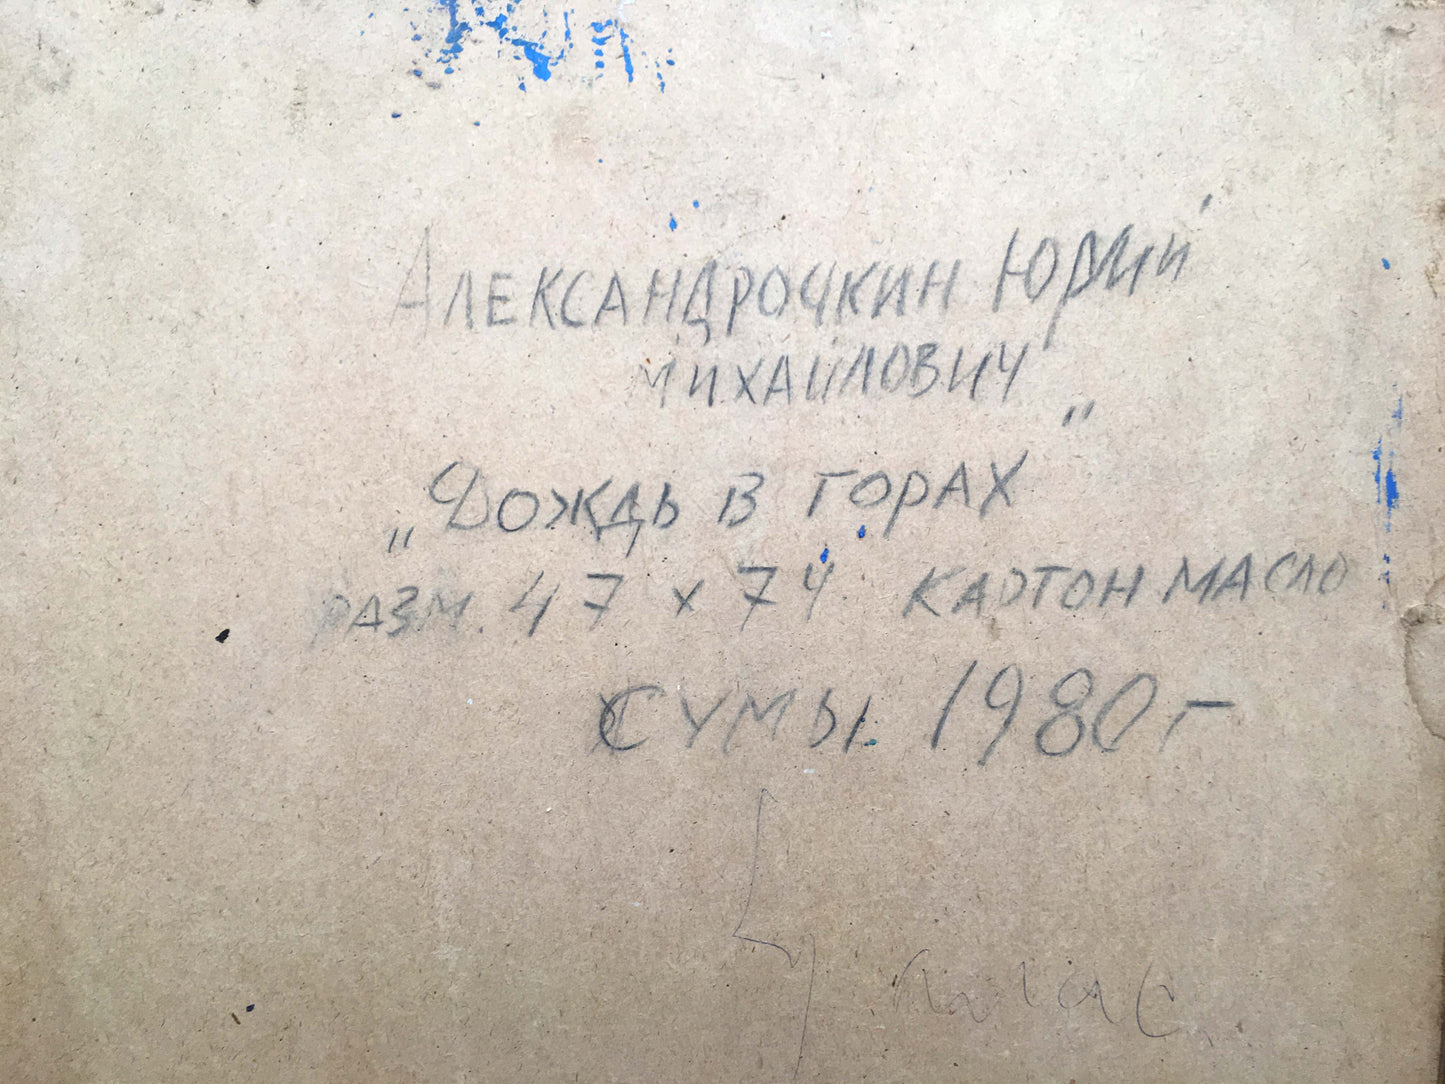 Александрочкин Юрий
Михайлович
„Дождь в горах"
разм. 47 x 74 картон масло
Сумы. 1980 г